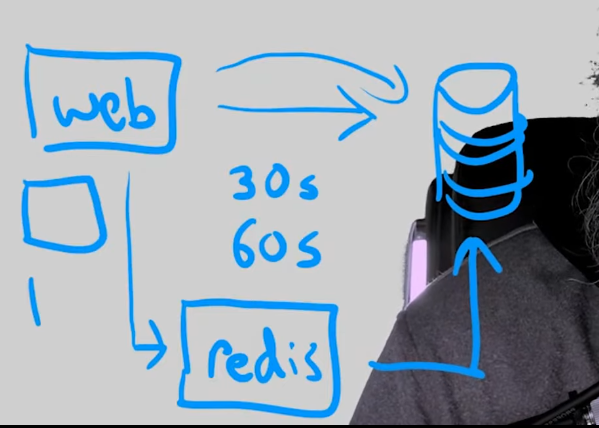 web
30s
60s
redis